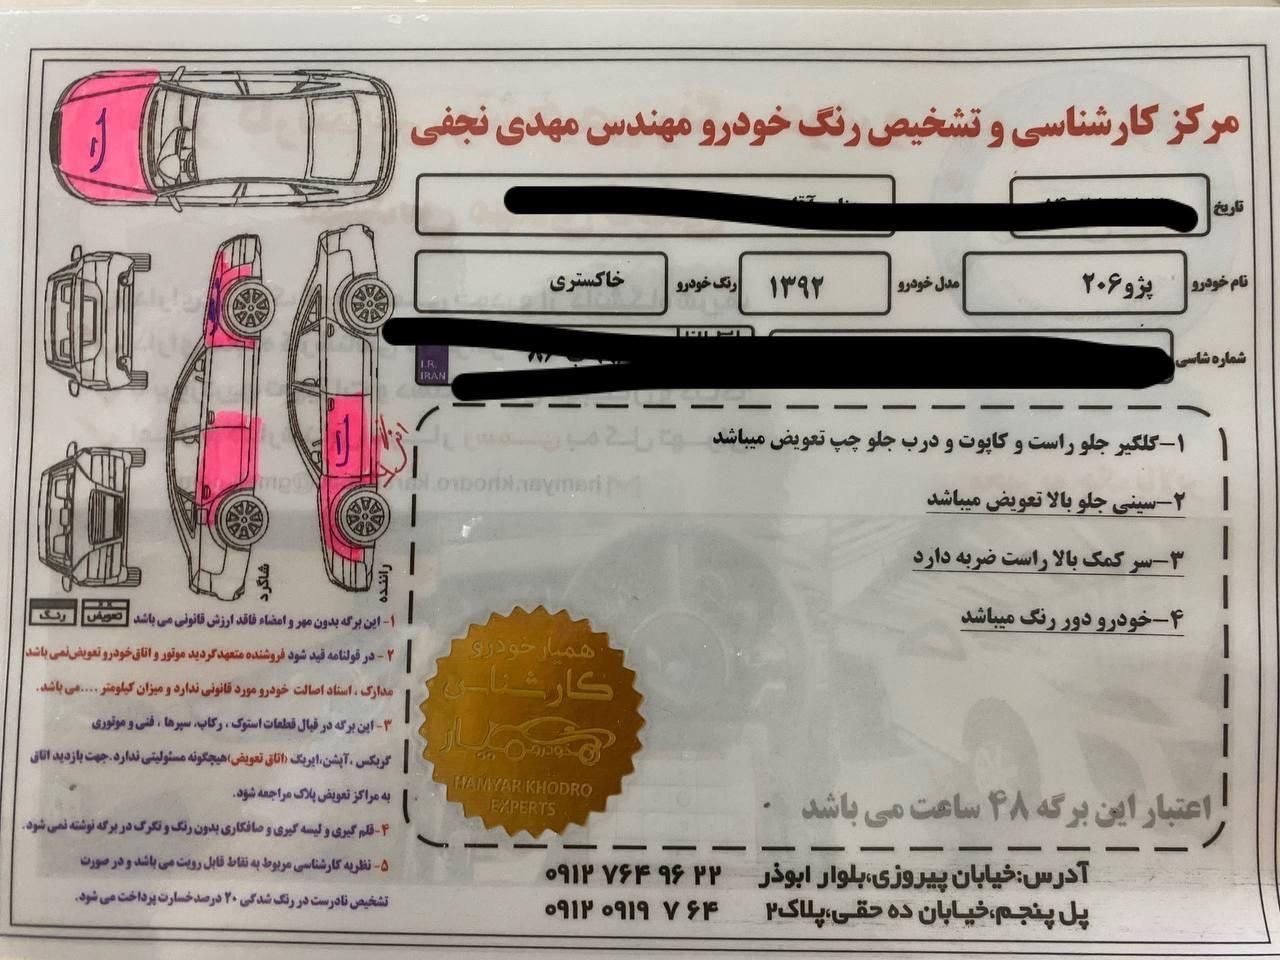 مرکز کارشناسی و تشخیص رنگ خودرو مهندس مهدی نجفی
تاریخ
نام خودرو پژو ۲۰۶ مدل خودرو ۱۳۹۲ رنگ خودرو خاکستری
شماره شاسی
I.R.
IRAN
۱-گلگیر جلو راست و کاپوت و درب جلو چپ تعویض میباشد
۲-سینی جلو بالا تعویض میباشد
۳-سر کمک بالا راست ضربه دارد
۴-خودرو دور رنگ میباشد
اعتبار این برگه ۴۸ ساعت می باشد
همیار خودرو
کارشناسی
HAMYAR KHODRO
EXPERTS
شاگرد
راننده
رنگ تعویض
۱- این برگه بدون مهر و امضاء فاقد ارزش قانونی می باشد
۲- در قولنامه قید شود فروشنده متعهد گردید موتور و اتاق خودرو تعویض نمی باشد
مدارک ، اسناد اصالت خودرو مورد قانونی ندارد و میزان کیلومتر ....می باشد.
۳- این برگه در قبال قطعات استوک ، رکاب، سپرها ، فنی و موتوری
گربکس ،آپشن،ایربگ (اتاق تعویض)هیچگونه مسئولیتی ندارد.جهت بازدید اتاق
به مراکز تعویض پلاک مراجعه شود.
۴-قلم گیری و لیسه گیری و صافکاری بدون رنگ و تگرگ در برگه نوشته نمی شود.
۵- نظریه کارشناسی مربوط به نقاط قابل رویت می باشد و در صورت
تشخیص نادرست در رنگ شدگی ۲۰ درصد خسارت پرداخت می شود.
آدرس:خیابان پیروزی،بلوار ابوذر ۰۹۱۲ ۷۶۴ ۹۶ ۲۲
پل پنجم،خیابان ده حقی،پلاک۲ ۰۹۱۲ ۰۹۱۹ ۷ ۶۴